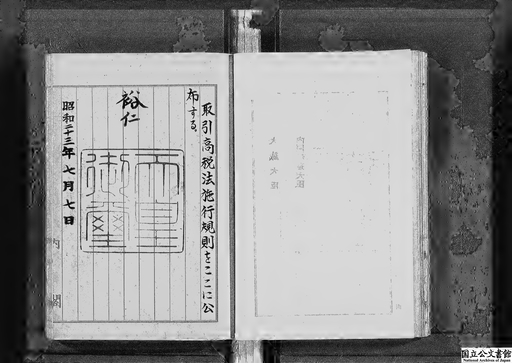 取引高税法施行規則をここに公
布する。
裕仁
天皇
御璽
昭和二十三年七月七日
内閣
大蔵大臣
国立公文書館
National Archives of Japan